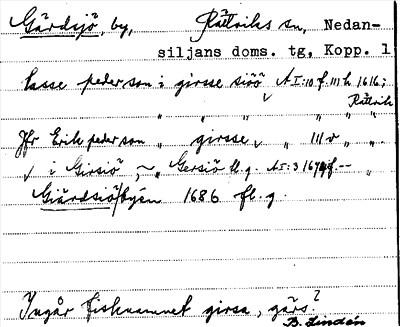 Gärdsjö, by, Rättviks sn, Nedan-
siljans doms. tg, Kopp. l
lasse pederson i girsse siöö AI:10 f. 111 h 1616;
Rättvik
" " " " " "
Jfr Erik pederson " girsse " " 111 v " "
√ i Girsiö, ~ " Gersiö fl. g. AI:3 f. -- "
Giärdsiö/byn 1686 fl. g.
Ingår fisknamnet girsa, gärs?
B. Lindén